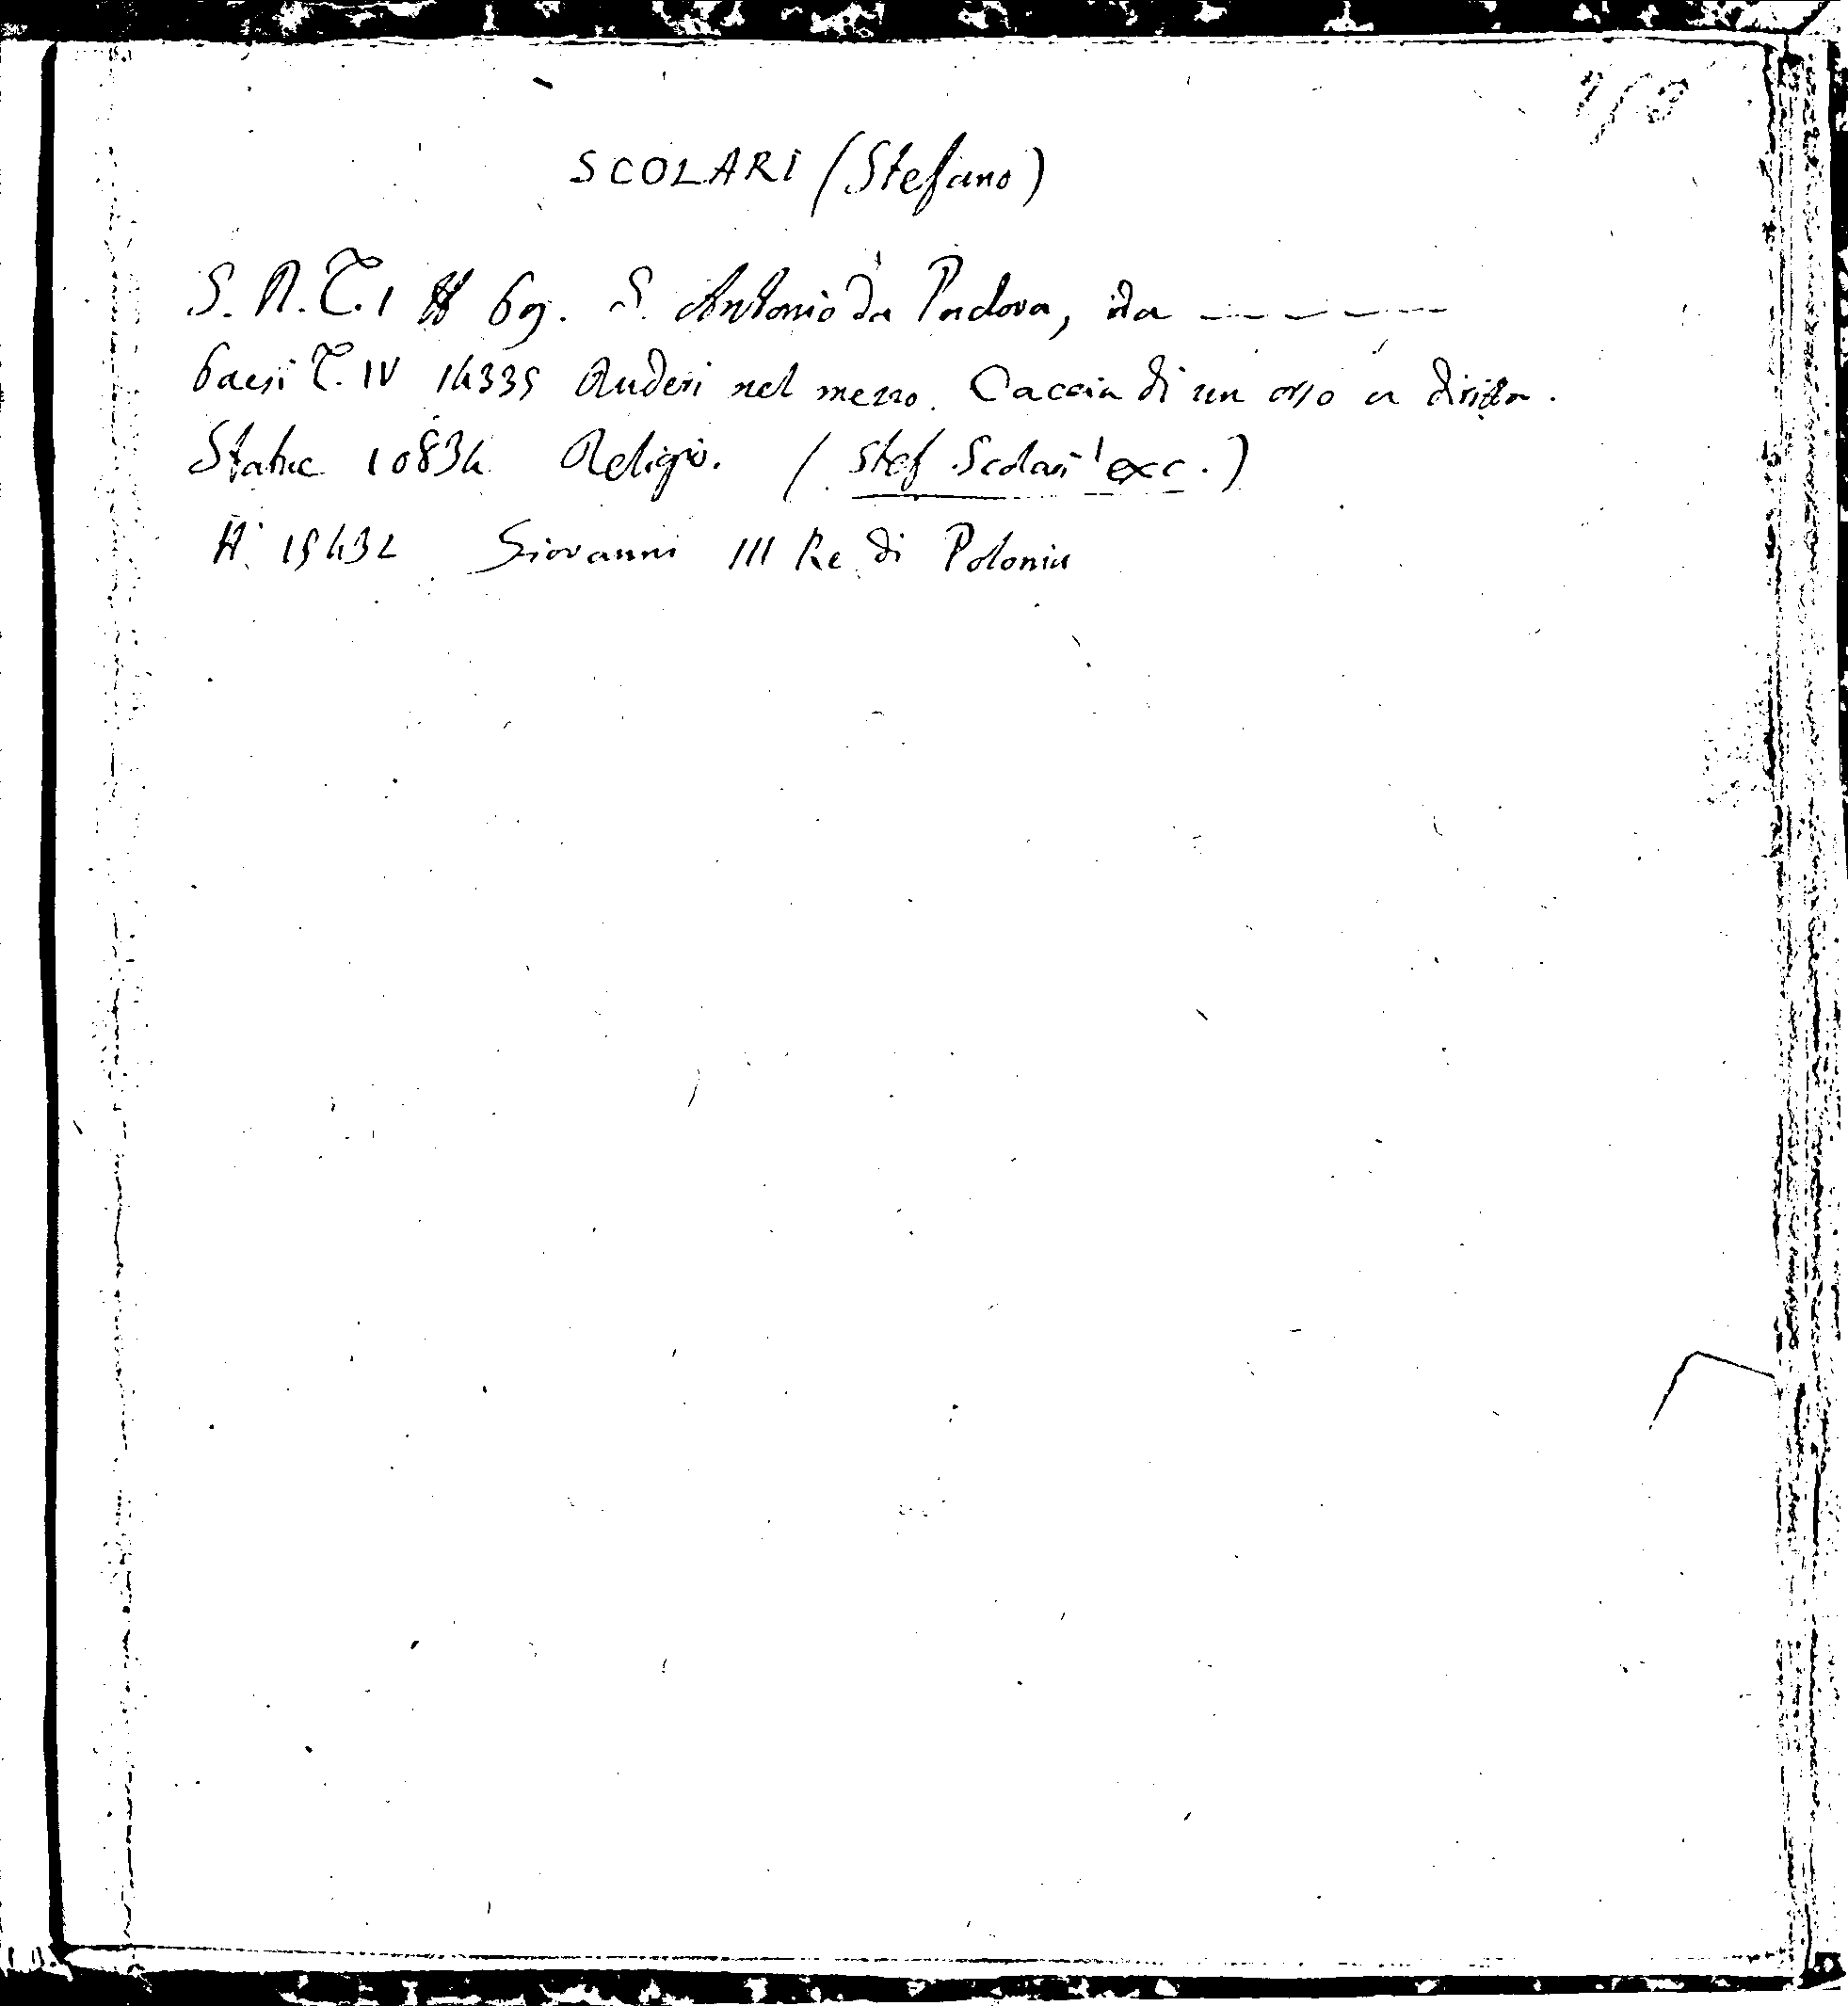 SCOLARI (Stefano)
S. R. T. 1 69. S. Antonio da Padova, da — — — — —
Paesi T. IV 14335 Ruderi nel mezzo. Caccia di un orso a diritta.
Statue 10834 Religio. (Stef. Scolari exc.)
R. 15432 Giovanni III Re di Polonia